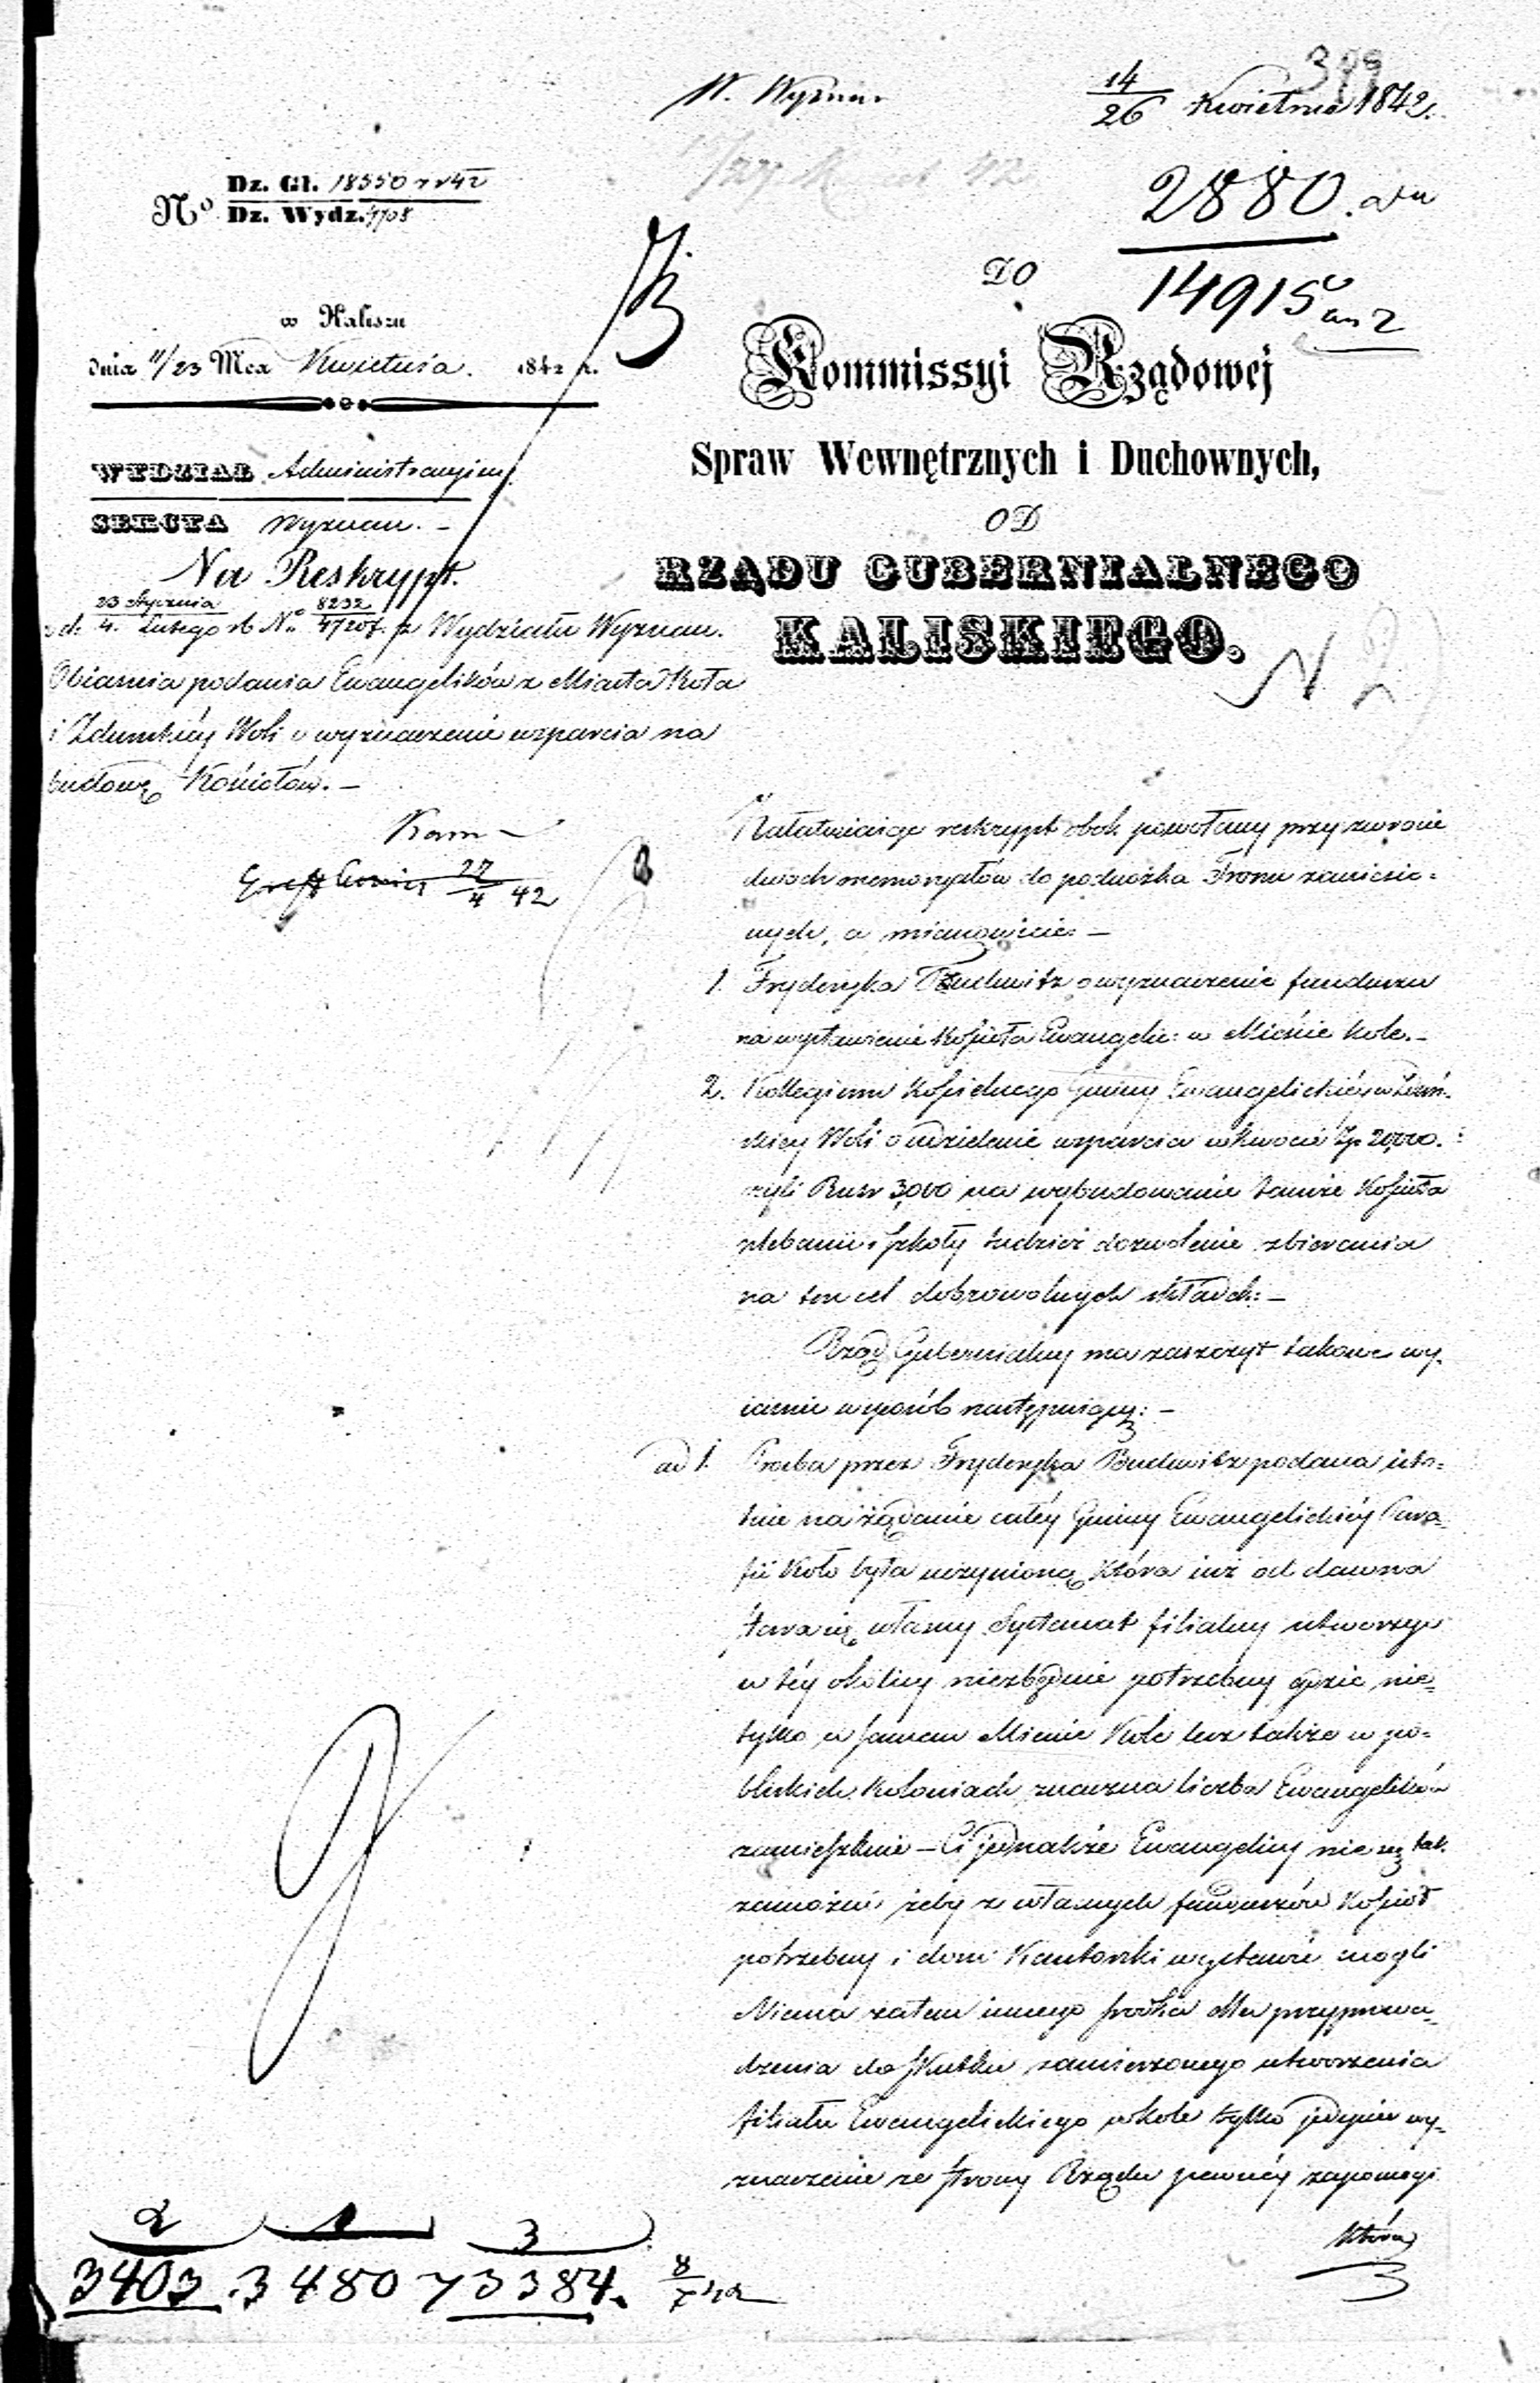 W. Wyznań
14/26 Kwietnia 1842.
399
2880.
14915
Dz. Gł. 18550
No Dz. Wydz. 4708
w Kaliszu
dnia 11/23 Mca Kwietnia. 1842 r.
WYDZIAŁ Administracyjny
SEKCYA Wyznań. –
Na Reskrypt.
z d. 23 Stycznia / 4. Lutego rb No. 8232/4720 z Wydziału Wyznań.
Obiaśnia podania Ewangelików z Miasta Koła
i Zduńskiéy Woli o wyznaczenie wsparcia na
budowę Kościołów. –
27/4 42
DO
Kommissyi Rządowej
Spraw Wewnętrznych i Duchownych,
OD
RZĄDU GUBERNIALNEGO
KALISKIEGO.
N 2
Załatwiaiąc reskrypt obok powołany przy zwrocie
dwóch memoryałów do podnóżka Tronu zaniesio=
nych, a mianowicie: –
1. Fryderyka o wyznaczenie funduszu
na wystawienie Kościoła Ewangelic: w Mieście Kole. –
2. Kollegium Kościelnego Gminy Ewangelickiéy w Zduń-
skiey Woli o udzielenie wsparcia w kwocie Zp 20,000.
czyli Rusr 3,000 na wybudowanie tamże Kościoła
plebanii i szkoły tudzież dozwolenie zbierania
na ten cel dobrowolnych składek: –
Rząd Gubernialny ma zaszczyt takowe wy-
iaśnić w sposób następuiący: –
ad 1. Prośba przez Fryderyka podana isto=
tnie na żądanie całéy Gminy Ewangelickiéy Para-
fii Koło była uczynioną, która iuż od dawna
stara się własny Systemat filialny utworzyć
w téy okolicy niezbędnie potrzebny gdzie nie-
tylko w samem Mieście Kole lecz także w po=
bliskich Koloniach znaczna liczba Ewangelików
zamieszkuie – Ci jednakże Ewangelicy nie są tak
zamożni, żeby z własnych funduszów Kościół
potrzebny i dom Kantorski wystawić mogli
Niema zatem innego środka dla przyprowa-
dzenia do skutku zamierzonego utworzenia
filiału Ewangelickiego w Kole tylko jedynie wy-
znaczenie ze strony Rządu pewnéy zapomogi
która
2 1 3
3403. 3480 73384.